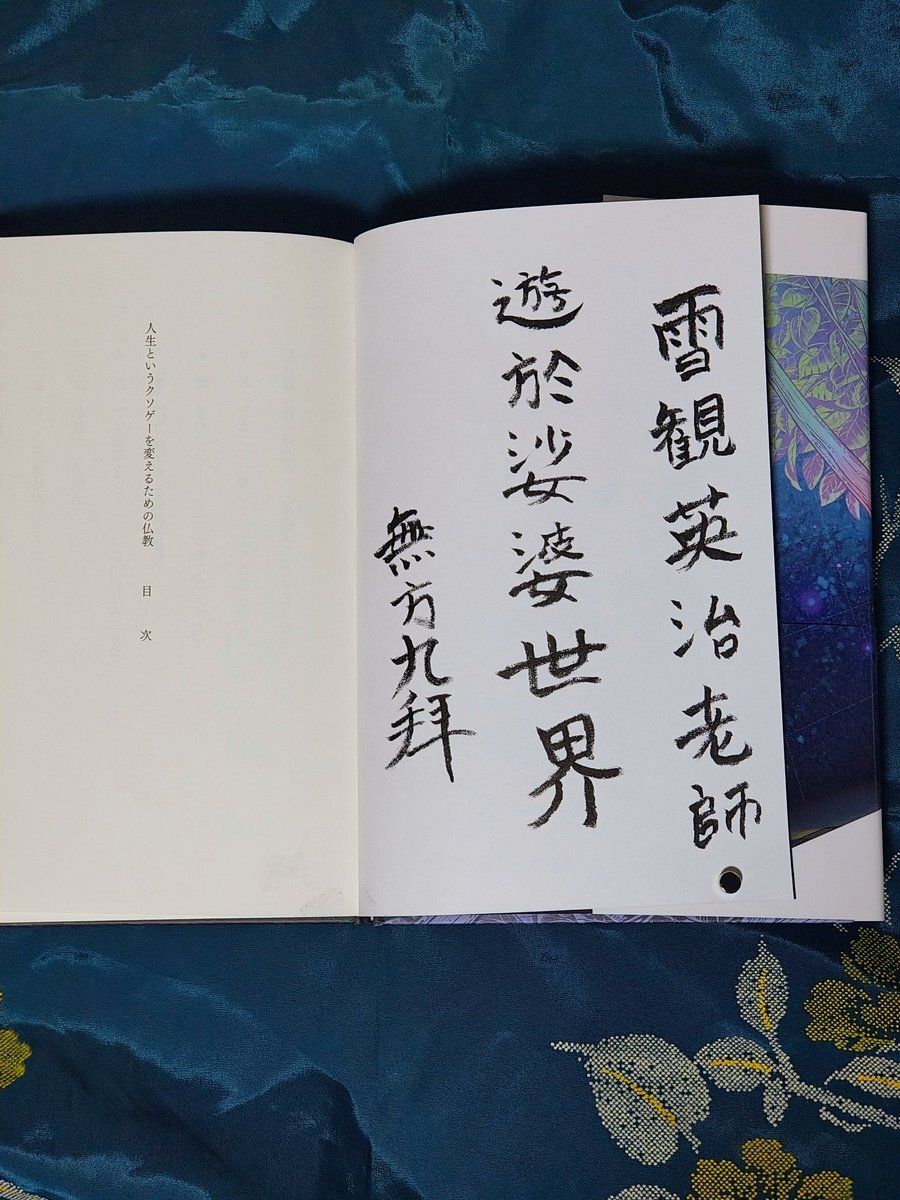 雪観英治老師
遊於娑婆世界
無方九拝
人生というクソゲーを変えるための仏教　目次